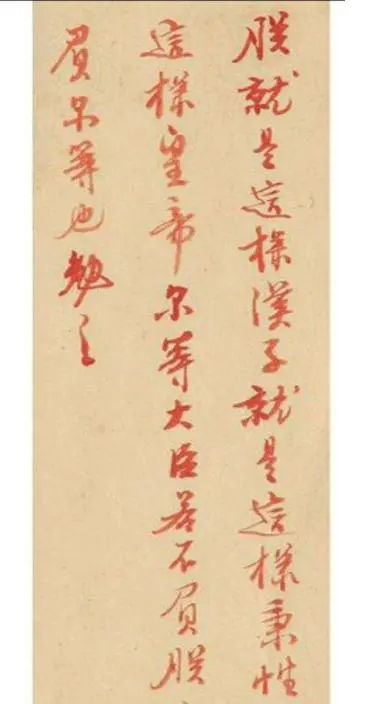 朕就是這樣漢子就是這樣秉性
這樣皇帝尔等大臣若不負朕
朕不負尔等也勉之